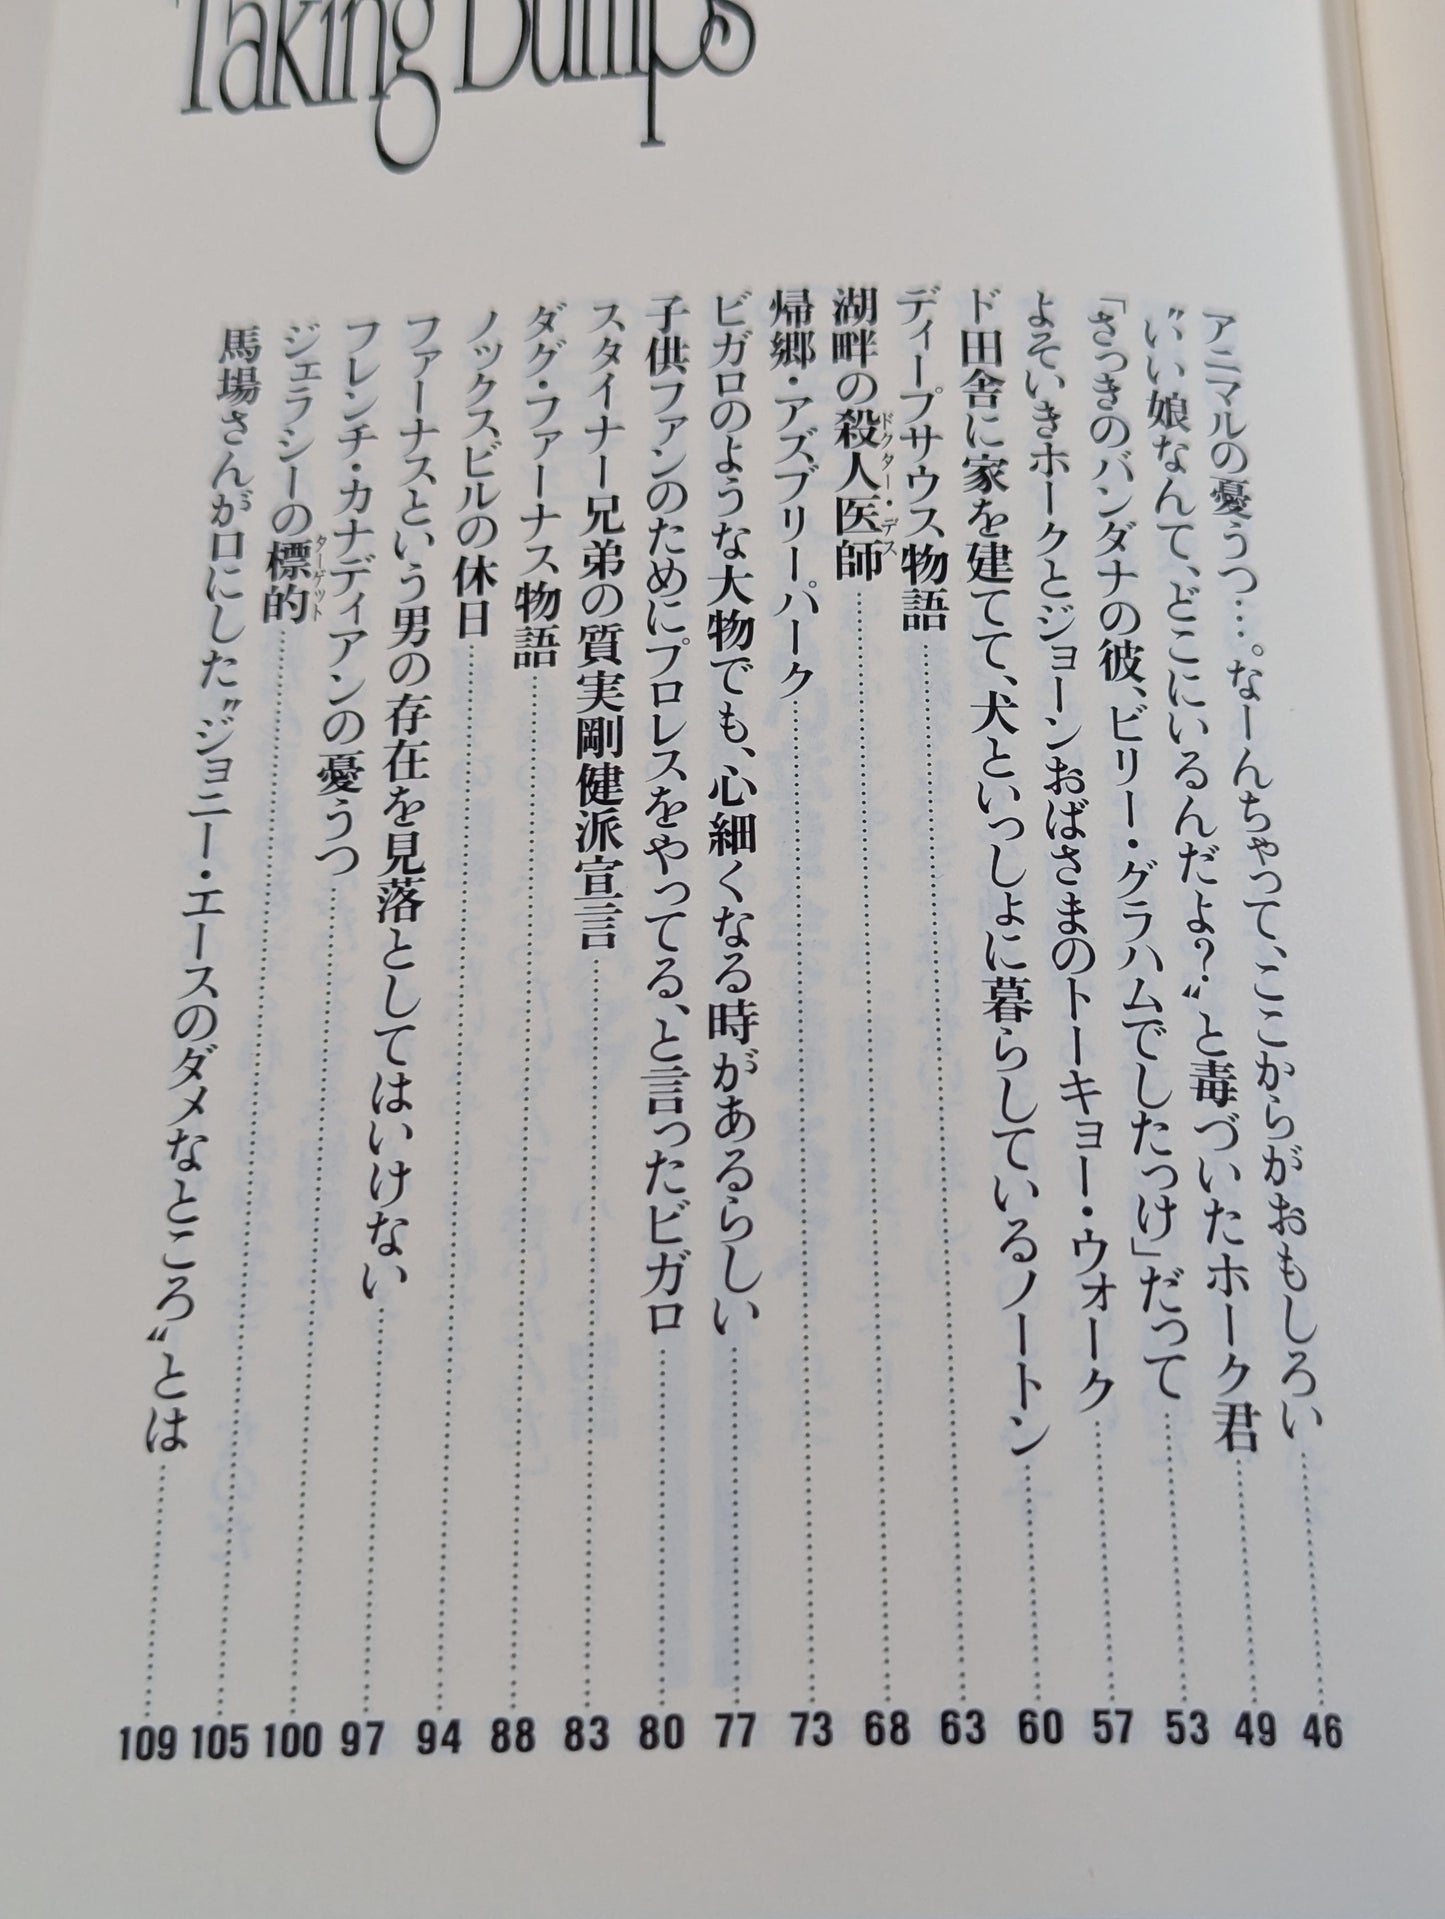 Taking Bumps
アニマルの憂うつ…。なーんちゃって、ここからがおもしろい……46
〝いい娘なんて、どこにいるんだよ？〟と毒づいたホーク君……49
「さっきのバンダナの彼、ビリー・グラハムでしたっけ」だって……53
よそいきホークとジョーンおばさまのトーキョー・ウォーク……57
ド田舎に家を建てて、犬といっしょに暮らしているノートン……60
ディープサウス物語……63
湖畔の殺人医師ドクター・デス……68
帰郷・アズブリーパーク……73
ビガロのような大物でも、心細くなる時があるらしい……77
子供ファンのためにプロレスをやってる、と言ったビガロ……80
スタイナー兄弟の質実剛健派宣言……83
ダグ・ファーナス物語……88
ノックスビルの休日……94
ファーナスという男の存在を見落としてはいけない……97
フレンチ・カナディアンの憂うつ……100
ジェラシーの標的ターゲット……105
馬場さんが口にした〝ジョニー・エースのダメなところ〟とは……109